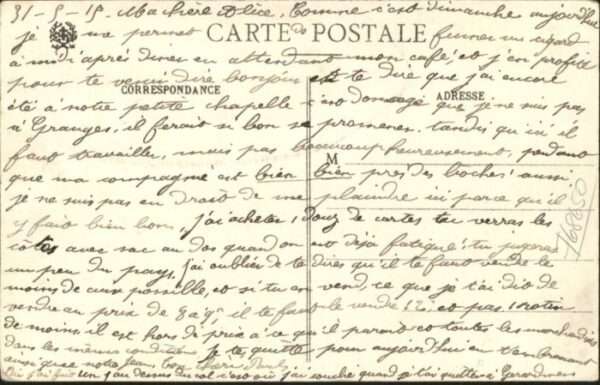 31-5-15. Ma chère Alice, Comme c'est dimanche aujourd'hui
je me permet fumer un cigard
CARTE POSTALE
à midi d'après diner en attendant mon café, et j'en profite
pour te venir dire bonjour et te dire que j'ai encore
CORRESPONDANCE
ADRESSE
été à notre petite chapelle c'est domage que je ne suis pas
à Granges, il ferait si bon se promener, tandis qu'ici il
faut travailler, mais pas beaucoup heureusement, pendant
M
que ma compagnie est bien bien près des boches aussi
je ne suis pas en droit de me plaindre ici parce qu'il
y fait bien bon, j'ai acheter 1 douz de cartes tu verras les
côtes avec sac au dos quand on est déjà fatigué tu jugeras
un peu du pays, j'ai oublier de te dire qu'il te faut vendre le
moins de cuir possible, et si tu en vend, ce que je t'ai dit de
vendre au prix de il te faut le vendre 12, et pas 1 rotin
de moins, il est hors de prix à ce qu'il parait et toutes les marchandises
dans les mêmes conditions. Je te quitte pour aujourd'hui en t'embrassant
ainsi que notre
j'ai fait un j au dessus du col c'est où j'ai couché quand j't'ai quitter à Gérardmer
168650